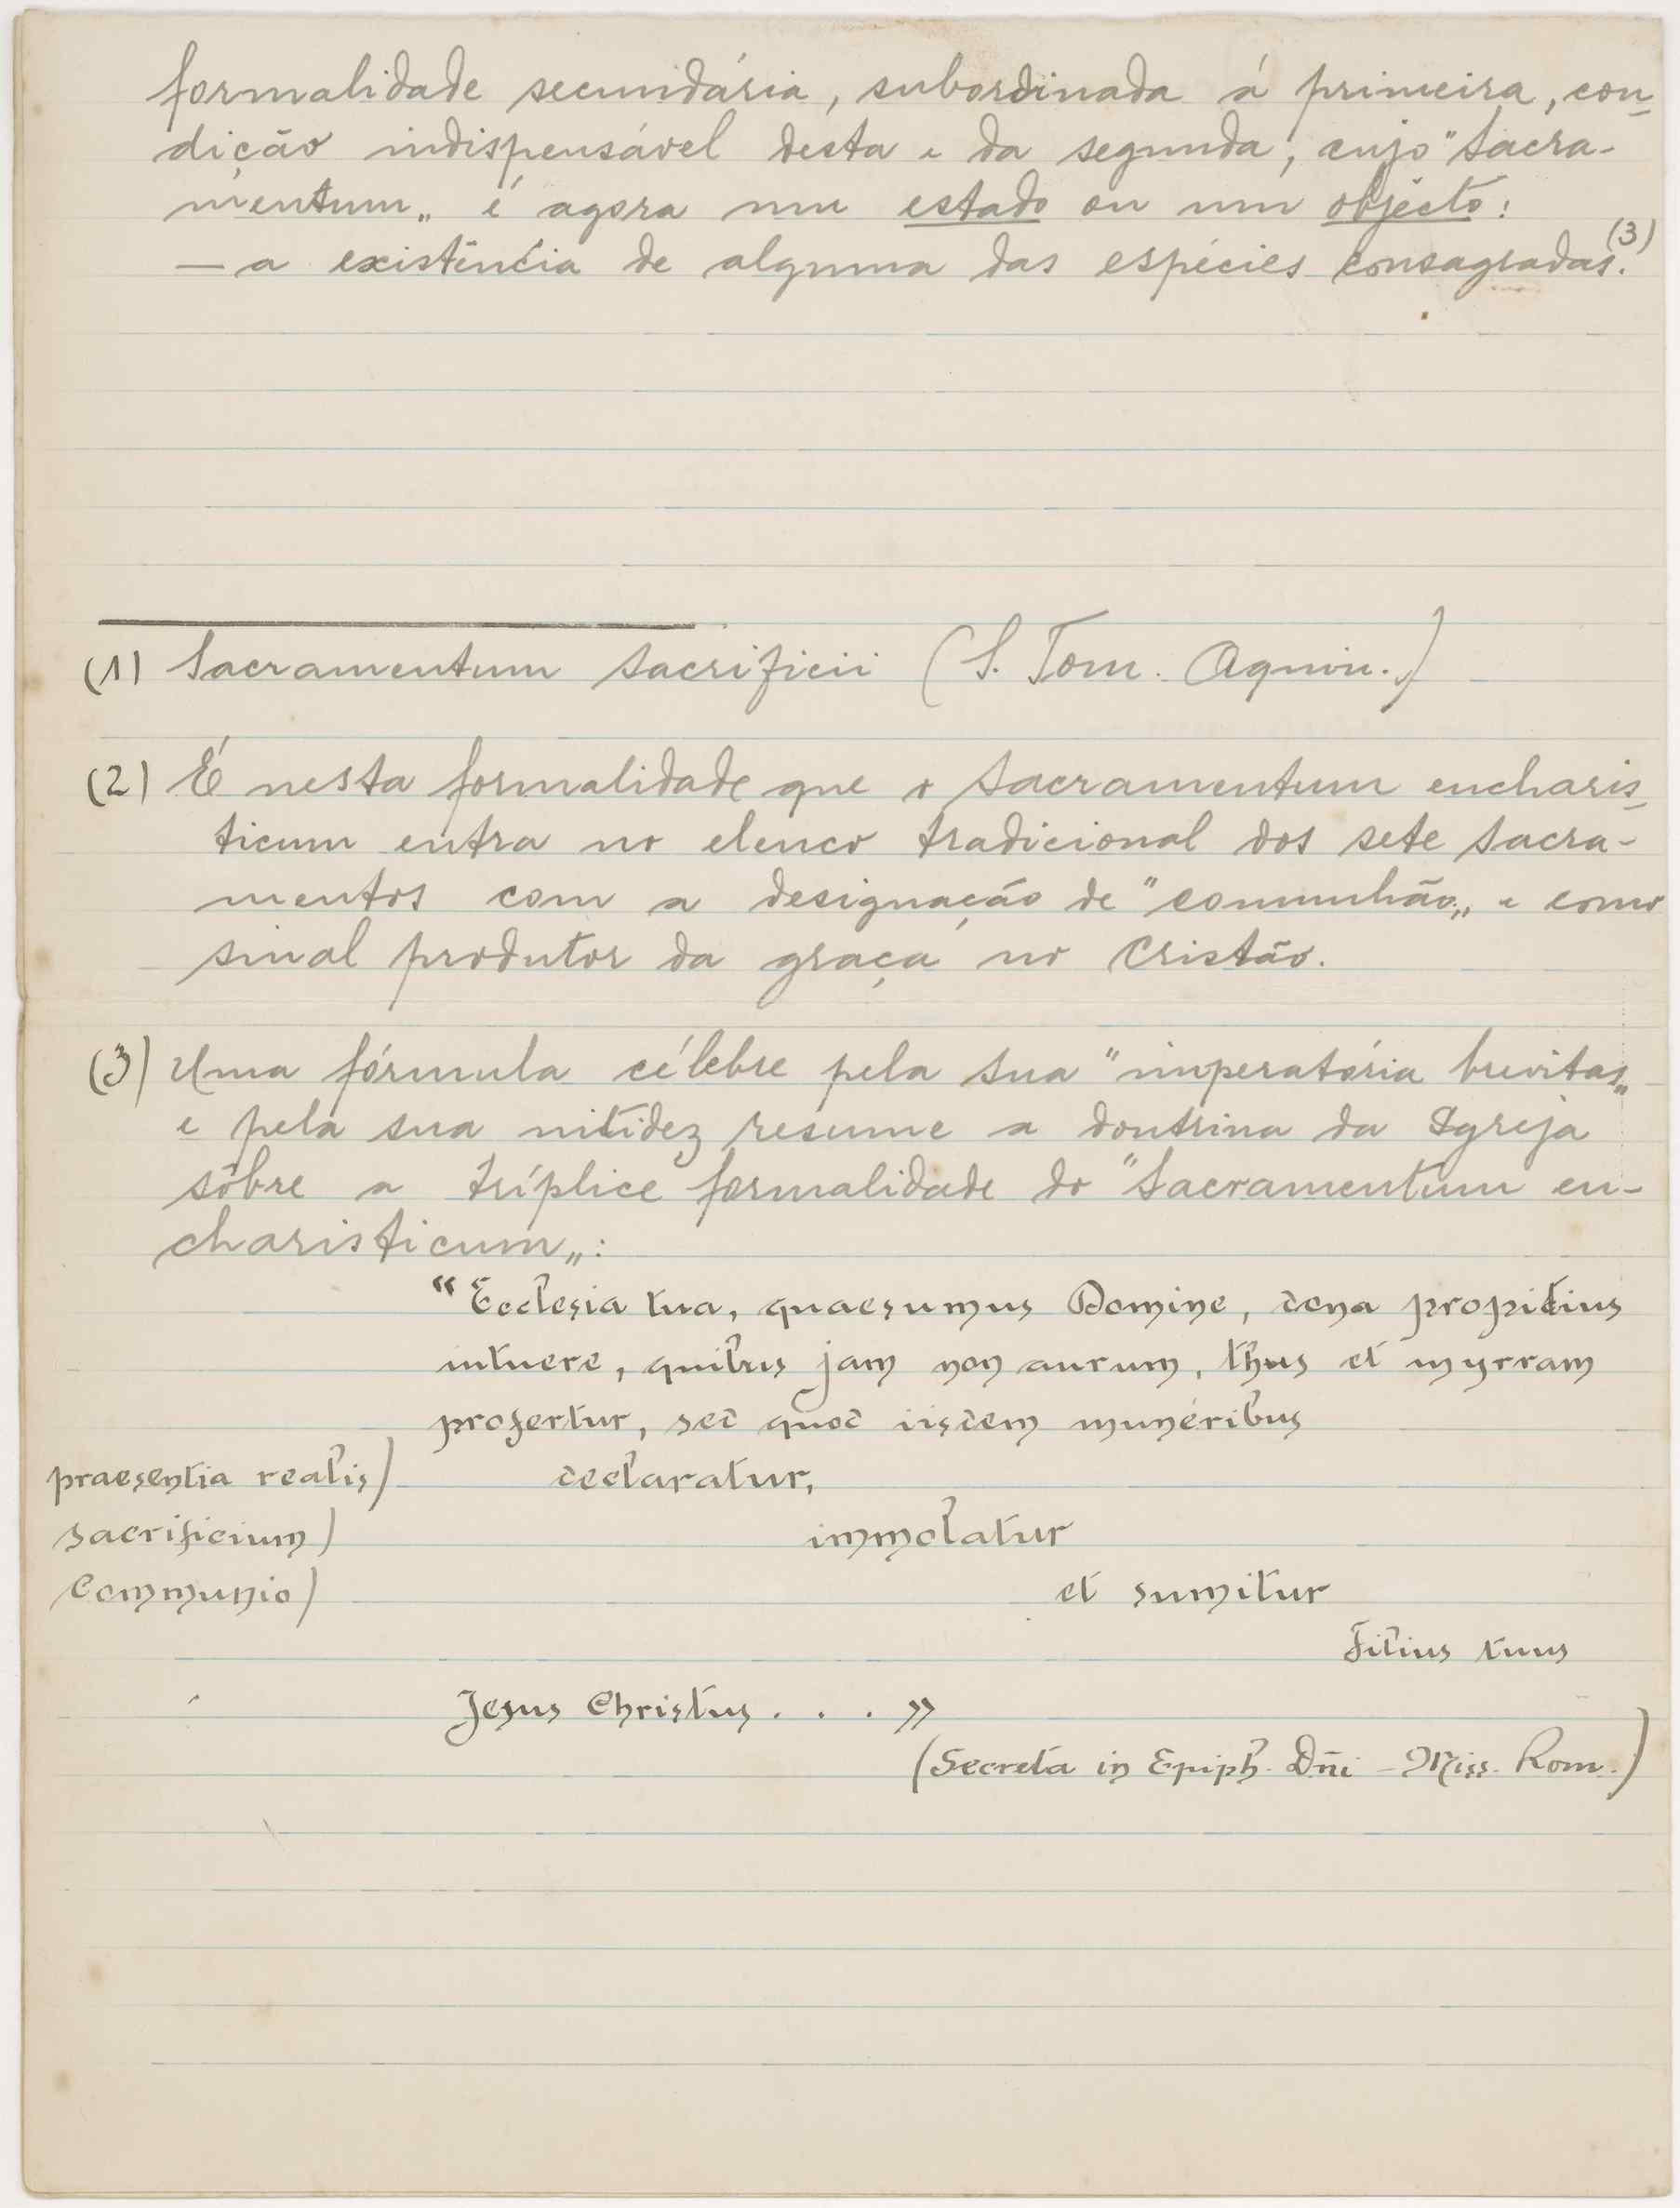 formalidade secundária, subordinada á primeira, con-
dição indispensável desta e da segunda, cujo "sacra-
mentum„ é agora um estado ou um objecto:
— a existência de alguma das espécies consagradas.(3)
(1) Sacramentum sacrificii (S. Tom. Aquin.)
(2) É nesta formalidade que o sacramentum eucharis-
ticum entra no elenco tradicional dos sete sacra-
mentos com a designação de "comunhão„ e como
sinal produtor da graça no cristão.
(3) Uma fórmula célebre pela sua "imperatória brevitas„
e pela sua nitidez resume a doutrina da Igreja
sôbre a tríplice formalidade do "sacramentum eu-
charisticum„:
"Ecclesia tua, quaesumus Domine, dona propitius
intuere, quibus jam non aurum, thus et myrram
profertur, sed quod iisdem muneribus
praesentia realis) declaratur,
sacrificium) immolatur
Communio) et sumitur
Filius tuus
Jesus Christus . . . »
(Secreta in Epiph. Dñi - Miss. Rom.)